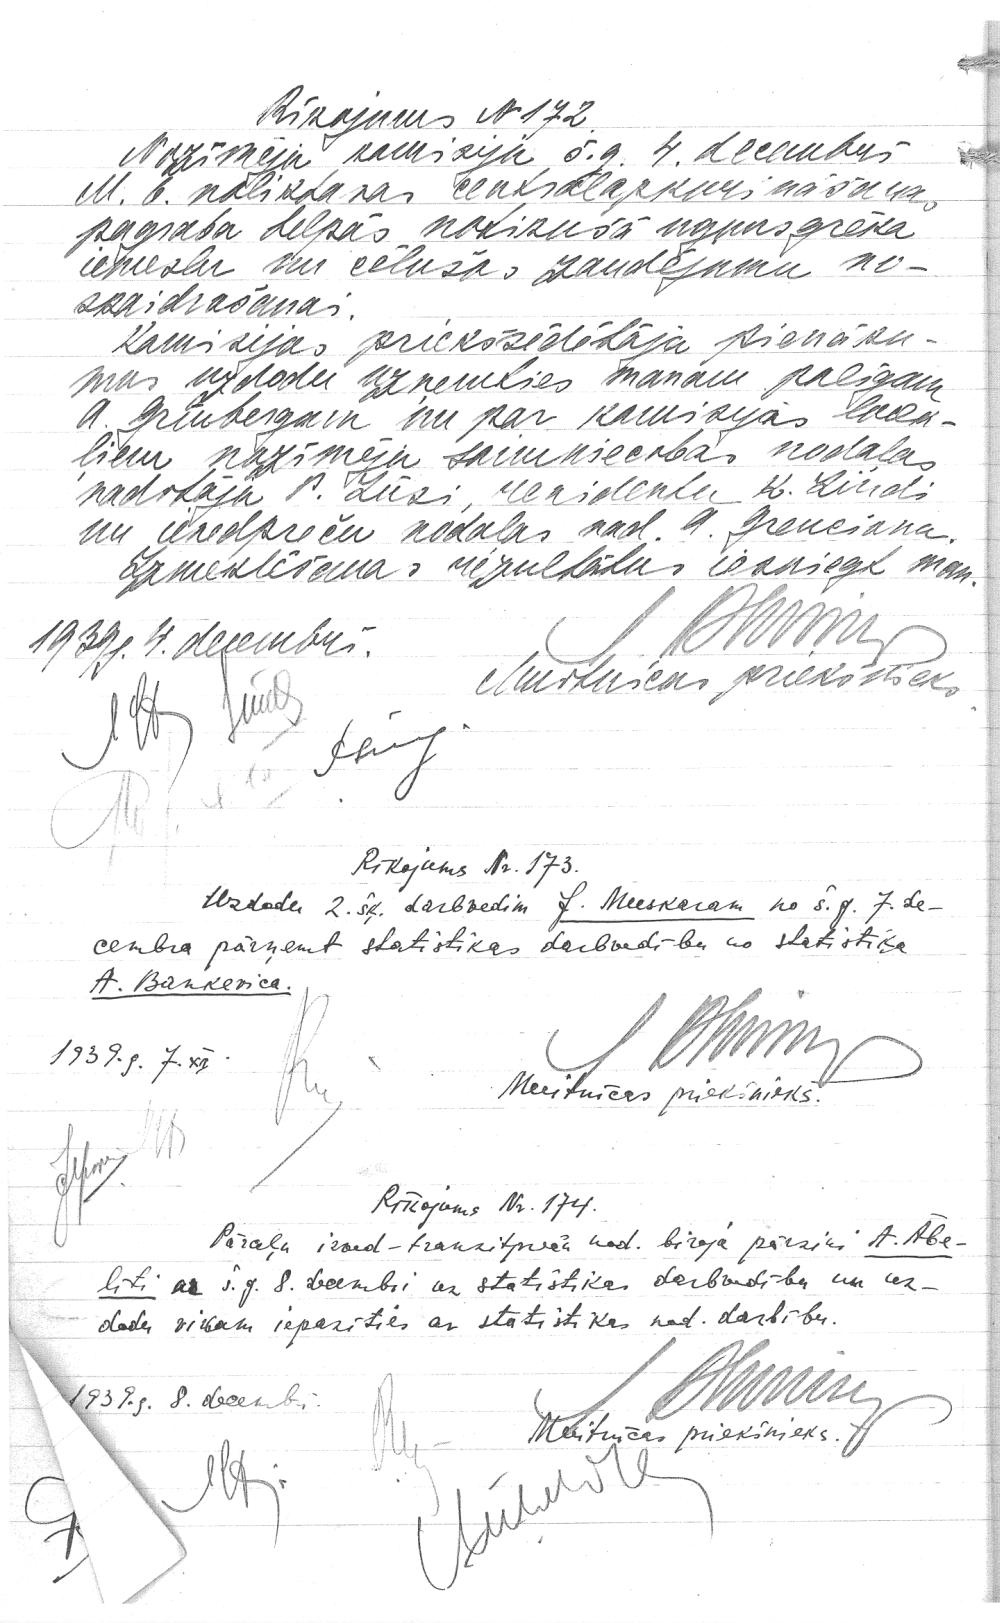 Rīkojums № 172.
Nozīmēju komisiju š.g. 4. decembrī
M. E. noliktavas centrālapkurināšanas
pagraba telpās notikušā ugunsgrēka
iemeslu un cēlušos zaudējumu no-
skaidrošanai.
Komisijas priekšsēdētāja pienāku-
mus uzdodu uzņemties manam palīgam
A. Grīnbergam un par komisijas locek-
ļiem nozīmēju saimniecības nodaļas
nadotāju P. Lūsi, rezidentu K. Lindi
un ievedpreču nodaļas nod. A. Grencionu.
Izmeklēšanas rezultātus iesniegt man.
1939g. 4. decembrī.
Muitnīcas priekšnieks.
Rīkojums Nr. 173.
Uzdodu 2. šķ. darbvedim J. Muskaram no š.g. 7. de-
cembra pārņemt statistikas darbvedību no statistiķa
A. Bankeviča.
1939.g. 7. XII.
Muitnīcas priekšnieks.
Rīkojums Nr. 174.
Pārceļu izved-tranzitpreču nod. biroja pārzini A. Ābe-
līti ar š.g. 8. decembri uz statistikas darbvedību un uz-
dodu viņam iepazīties ar statistikas nod. darbību.
1939.g. 8. decembrī.
Muitnīcas priekšnieks.